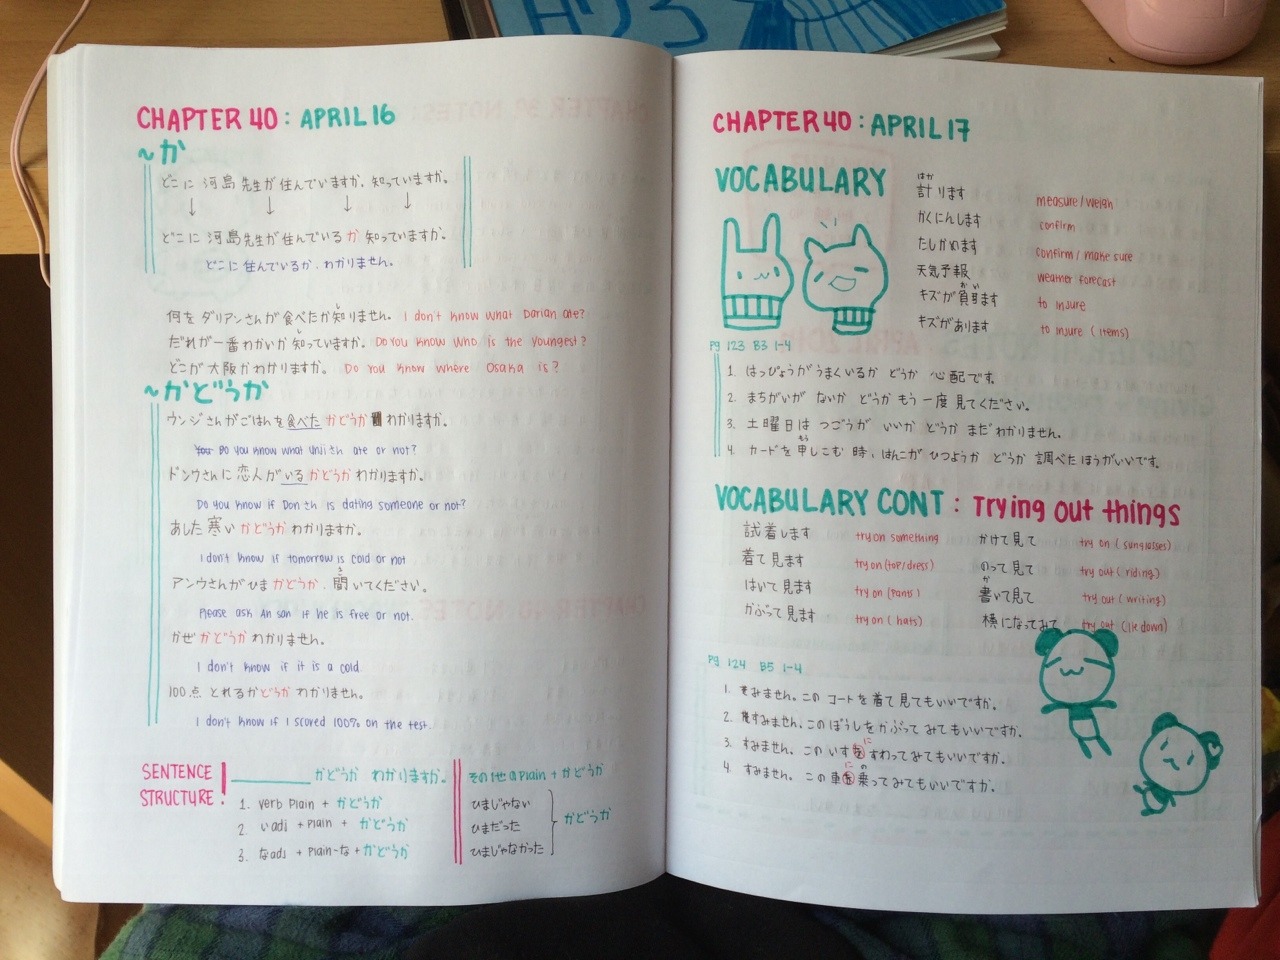 CHAPTER 40 : APRIL 16
~か
どこに 河島先生が 住んでいますか. 知っていますか。
どこに 河島先生が 住んでいる か 知っていますか。
どこに 住んでいるか. わかりません。
何を ダリアンさんが 食べたか 知りません。 I don't know what Darian ate?
し
だれが 一番 わかいか 知っていますか。 Do you know who is the youngest?
し
どこが 大阪か わかりますか。 Do you know where Osaka is?
~かどうか
ウンジさんがごはんを 食べた かどうか わかりますか。
Do you know what Unji sh ate or not?
ドンウさんに 恋人が いる かどうか わかりますか。
Do you know if Don sh is dating someone or not?
あした 寒い かどうか わかりますか。
I don't know if tomorrow is cold or not
アンウさんが ひま かどうか. 聞いてください。
き
Please ask An san if he is free or not.
かぜ かどうか わかりません。
I don't know if it is a cold
100点 とれる かどうか わかりません。
I don't know if I scored 100% on the test.
SENTENCE STRUCTURE!
かどうか わかりますか。
1. verb plain + かどうか
2. いadj + plain + かどうか
3. なadj + plain-な + かどうか
その他 の plain + かどうか
ひまじゃない
ひまだった
ひまじゃなかった
かどうか
CHAPTER 40 : APRIL 17
VOCABULARY
はか
計ります measure / weigh
かくにんします confirm
たしかめます confirm / make sure
天気予報 weather forecast
キズが負います to insure
お い
キズがあります to insure (items)
pg 123 B3 1-4
1. はっぴょうが うまくいるか どうか 心配です。
2. まちがいが ないか どうか もう 一度 見てください。
3. 土曜日は つごうが いいか どうか まだ わかりません。
もう
4. カードを 申しこむ 時、はんこが ひつようか どうか 調べた ほうがいいです。
VOCABULARY CONT : Trying out things
試着します try on something
着て 見ます try on (top/dress)
はいて 見ます try on (pants)
かぶって 見ます try on (hats)
かけて 見て try on (sunglasses)
のって 見て try out (riding)
か
書いて 見て try out (writing)
横になってみて try out (lie down)
pg 124 B5 1-4
1. すみません。この コートを 着て 見てもいいですか。
2. すみません。この ぼうしを かぶって みてもいいですか。
3. すみません。この いす を すわってみてもいいですか。
に
4. すみません。この 車 を 乗ってみてもいいですか。
に の